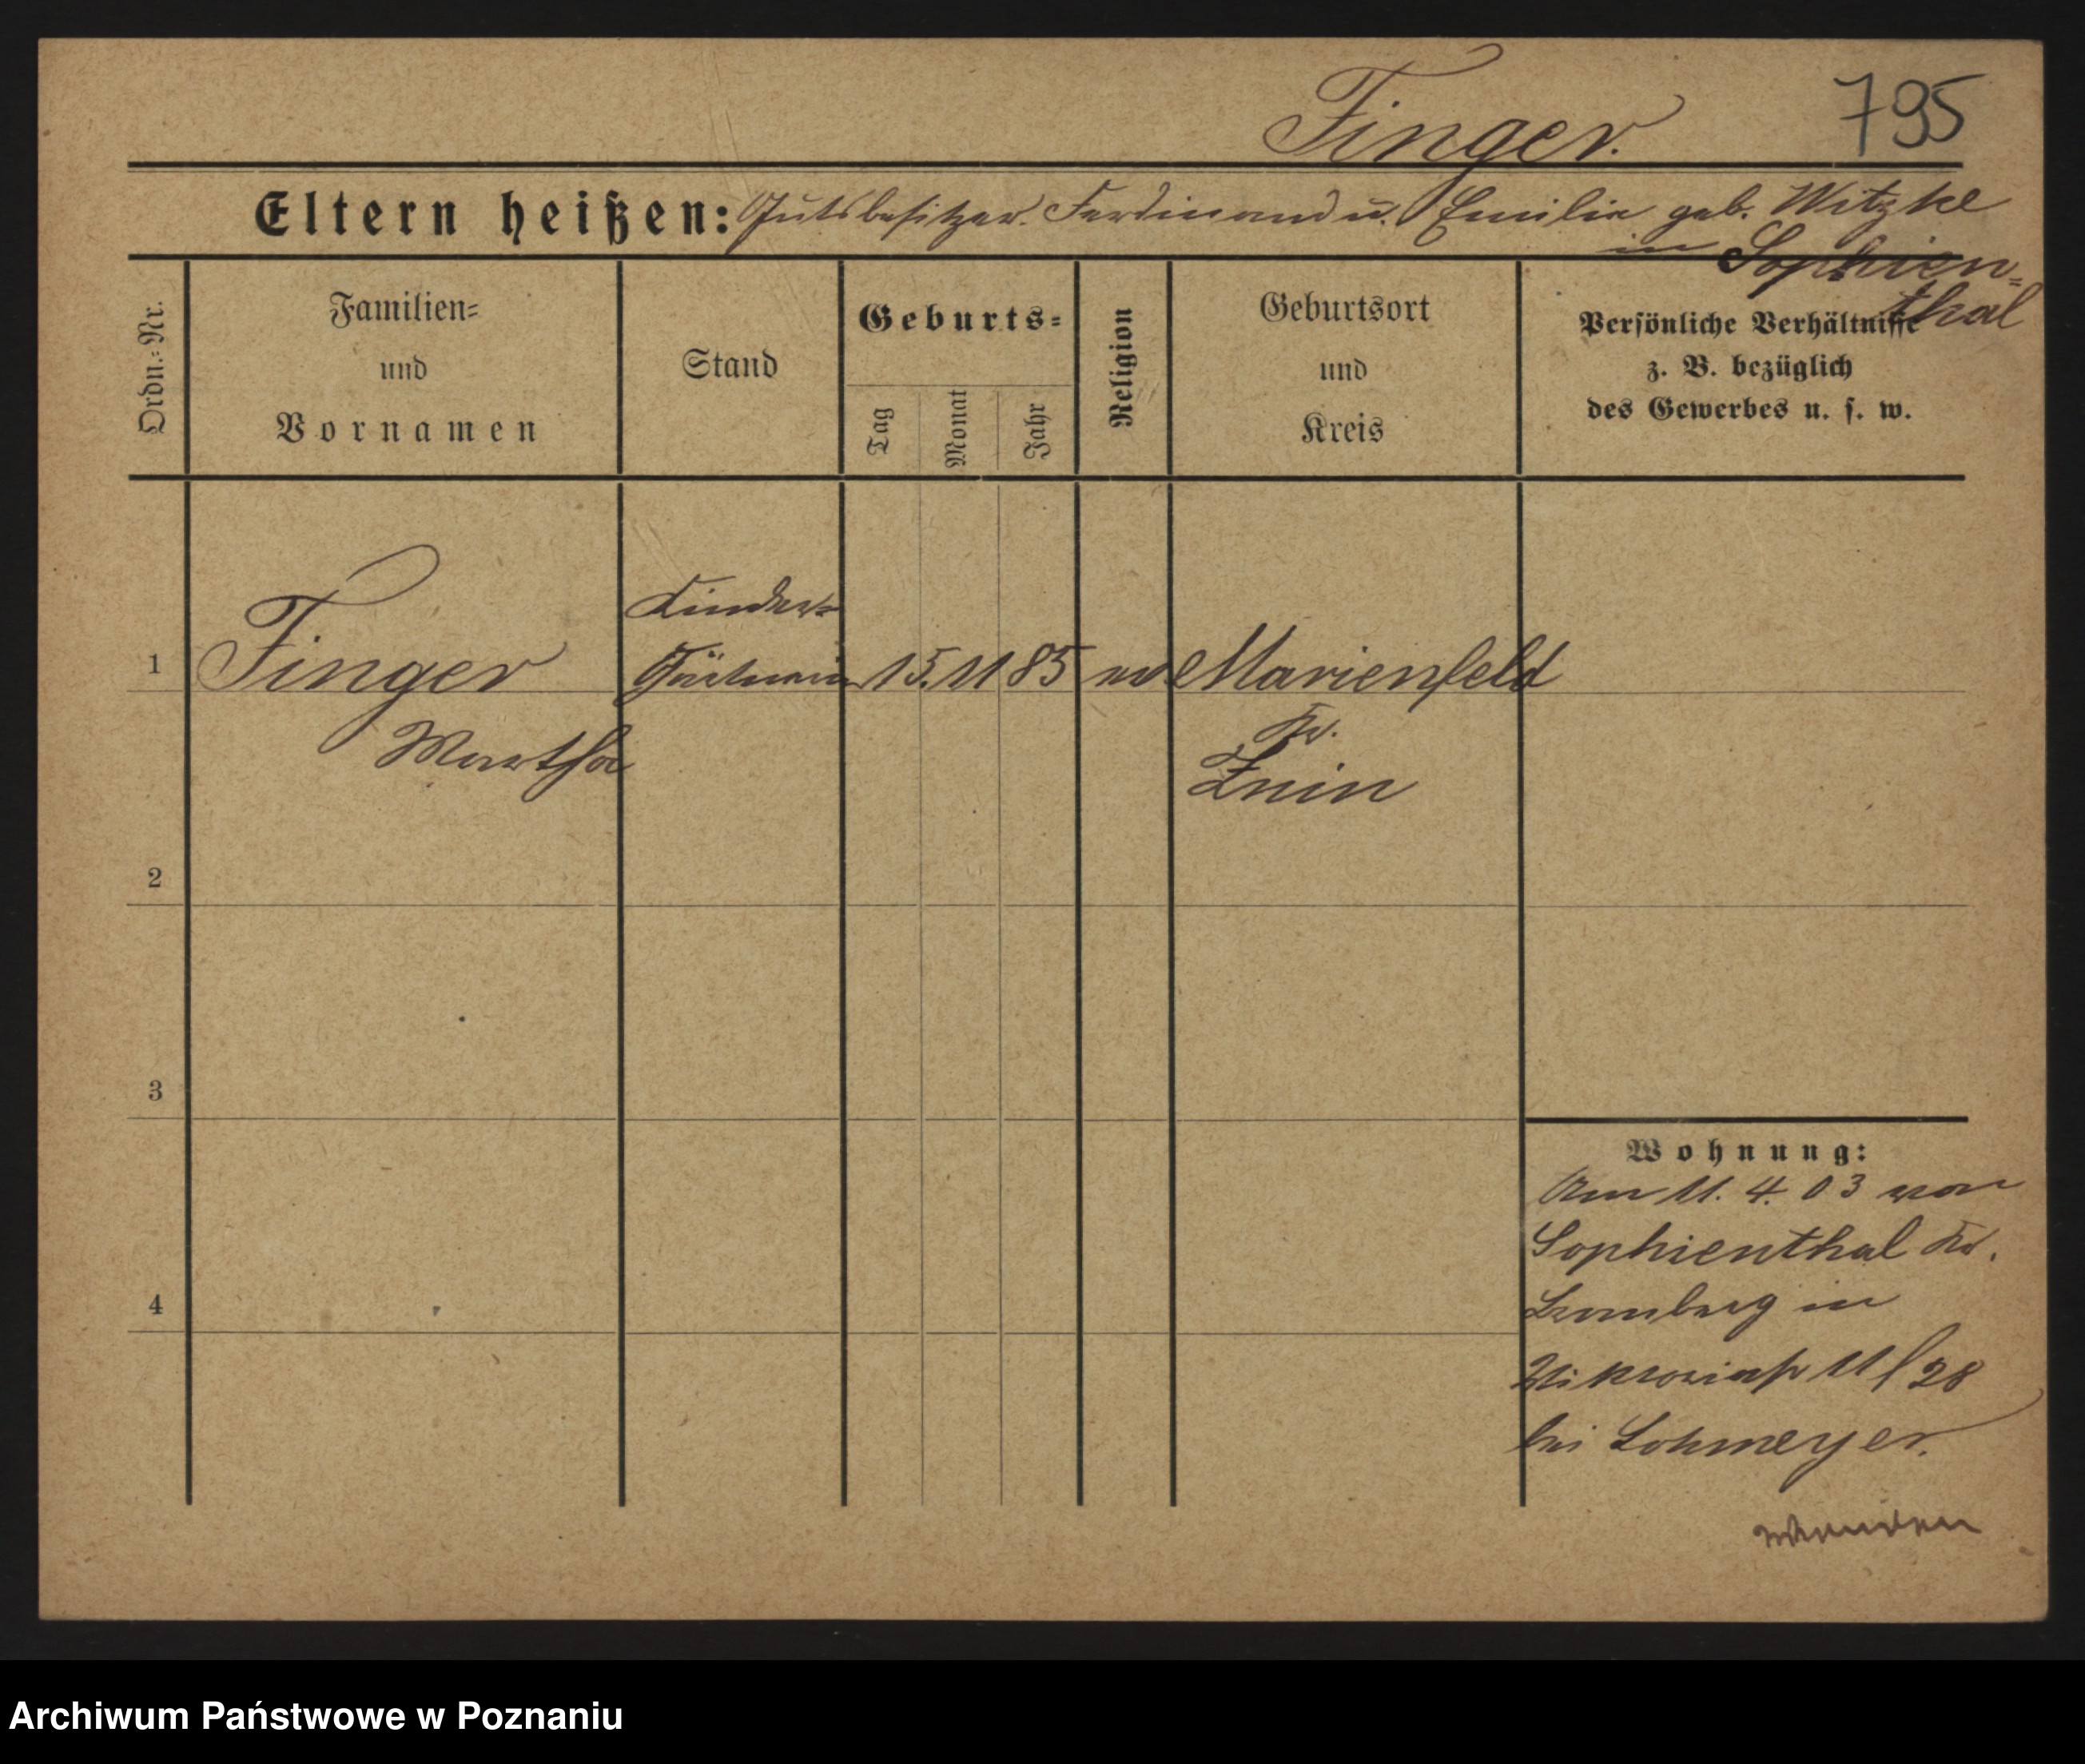 Finger.
795
Eltern heißen: Gutsbesitzer Ferdinand u. Emilie geb. Witzke
in Sophien=
thal
Ordn.=Nr.
Familien=
und
Vornamen
Stand
Geburts=
Tag
Monat
Jahr
Religion
Geburtsort
und
Kreis
Persönliche Verhältnisse
z. B. bezüglich
des Gewerbes u. s. w.
Kinder=
1 Finger Gärtnerin 15. 11 85 ev Marienfeld
Martha Kr.
Znin
2
3
4
Wohnung:
Am 11. 4. 03 von
Sophienthal Kr.
Bromberg in
Viktoriastr 11/28
bei Lohmeyer.
wenden
Archiwum Państwowe w Poznaniu